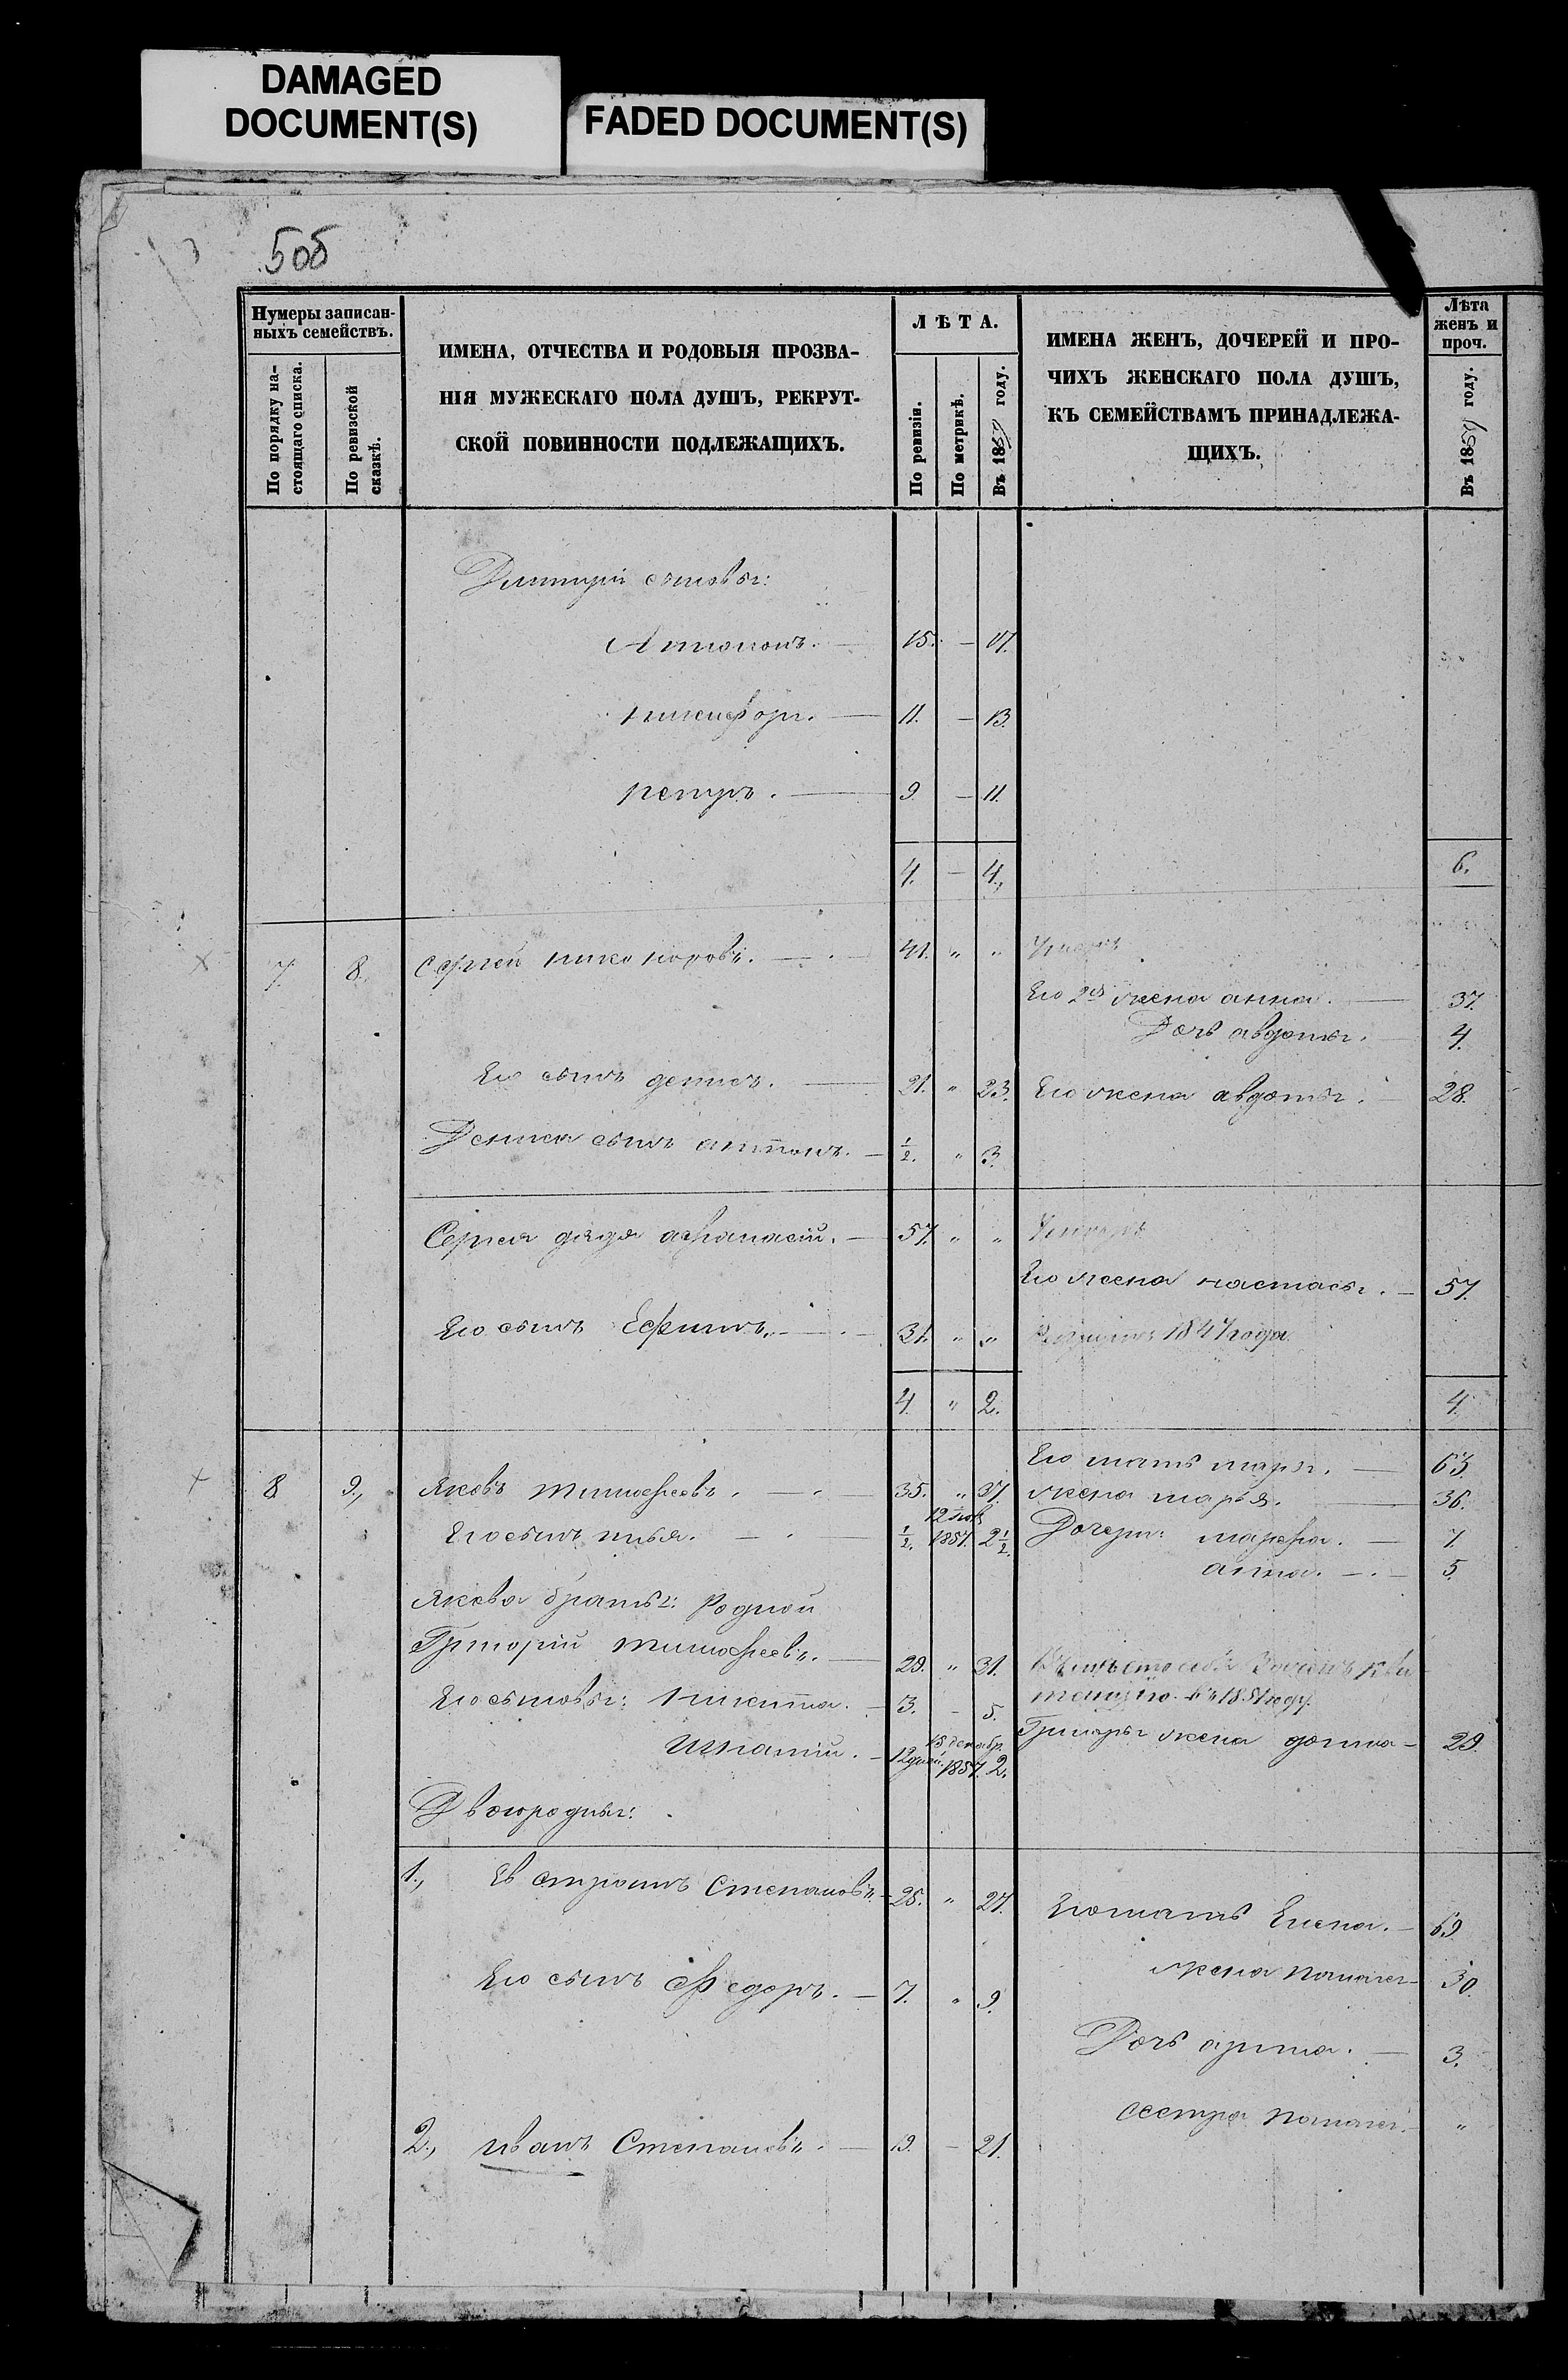 DAMAGED
DOCUMENT(S)
FADED DOCUMENT(S)
505
Нумеры записан-
ныхъ семействъ.
По порядку на-
стоящаго списка.
По ревизской
сказкѣ.
ИМЕНА, ОТЧЕСТВА И РОДОВЫЯ ПРОЗВА-
НІЯ МУЖЕСКАГО ПОЛА ДУШЪ, РЕКРУТ-
СКОЙ ПОВИННОСТИ ПОДЛЕЖАЩИХЪ.
ЛѢТА.
По ревизіи.
По метрикѣ.
Въ 18 году.
ИМЕНА ЖЕНЪ, ДОЧЕРЕЙ И ПРО-
ЧИХЪ ЖЕНСКАГО ПОЛА ДУШЪ,
КЪ СЕМЕЙСТВАМЪ ПРИНАДЛЕЖА-
ЩИХЪ.
Лѣта
женъ и
проч.
Въ 18 году.
сыновья:
15. — 17.
Никифоръ. — 11. — 13.
Петръ. — 9 — 11.
4. — 4. 6.
7. 8. Сергей Никоноровъ. — 41. " " Умеръ
Его 2я жена анна. — 37.
Дочь авдотья. — 4.
Его сынъ денисъ. — 21. " 23. Его жена авдотья. — 28.
Дениса сынъ антонъ. — 1/2. " 3.
Сергея дядя афанасій. — 57. " "
Его жена настасья. — 57.
Его сынъ Ефимъ. — 31. " " 1847 года
4. " 2. 4.
Его мать марья. — 63.
8 9. Яковъ Тимофеевъ. — 35. " 37. жена марья. — 36.
Его сынъ илья. — 1/2. 12 1857. 2 1/2. Дочери: марфа. — 7.
анна. — 5.
Якова братья: Родной
Григорій Тимофеевъ. — 29. " 31.
Его сыновья: Никита. — 3. — 5. въ 1851 году.
Игнатій. — 12 дней. 15 декабр. 1857. 2. Григорья жена — 29.
Двоюродные:
1., Евстратъ Степановъ. — 25. " 27. Его мать Елена. — 69.
жена — 30.
Его сынъ Федоръ. — 7. " 9.
Дочь арина. — 3.
сестра — "
2., Иванъ Степановъ. — 19. — 21.